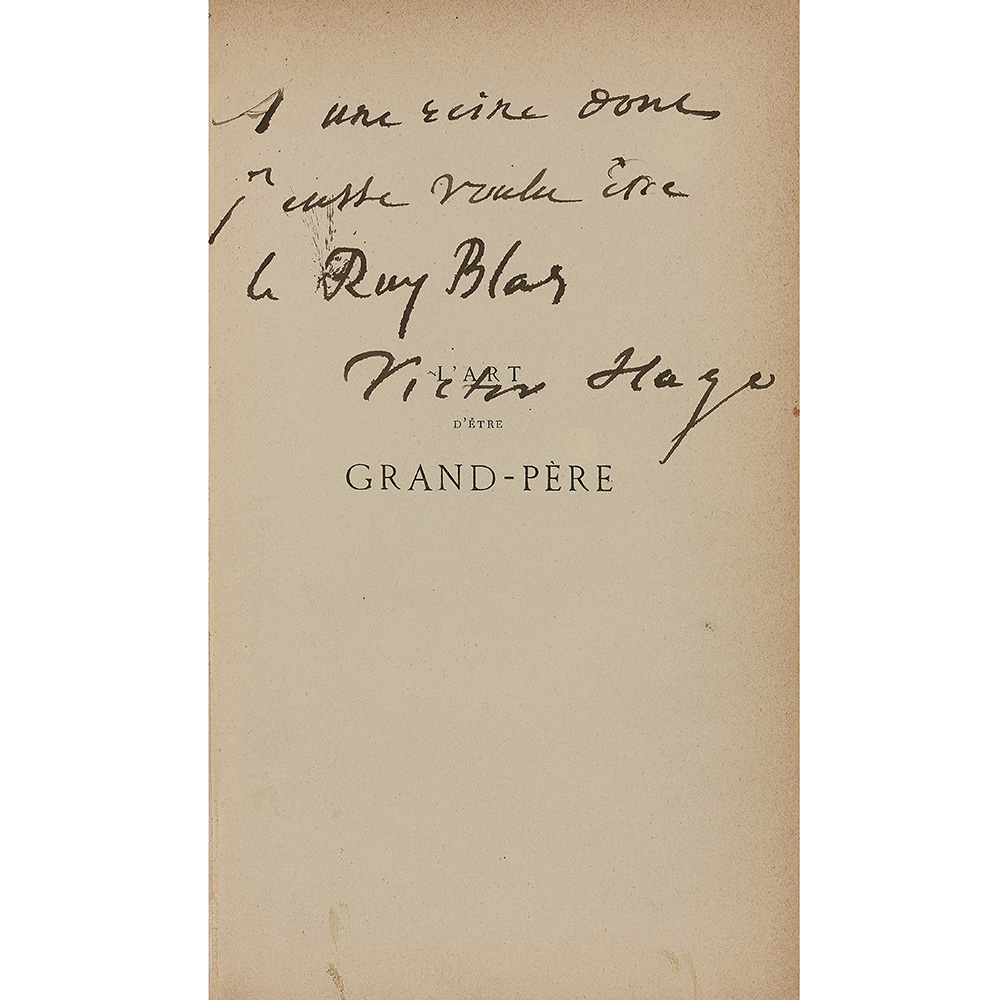 A une reine dont
j'eusse voulu être
le Ruy Blas
Victor Hugo
L'ART
D'ÊTRE
GRAND-PÈRE